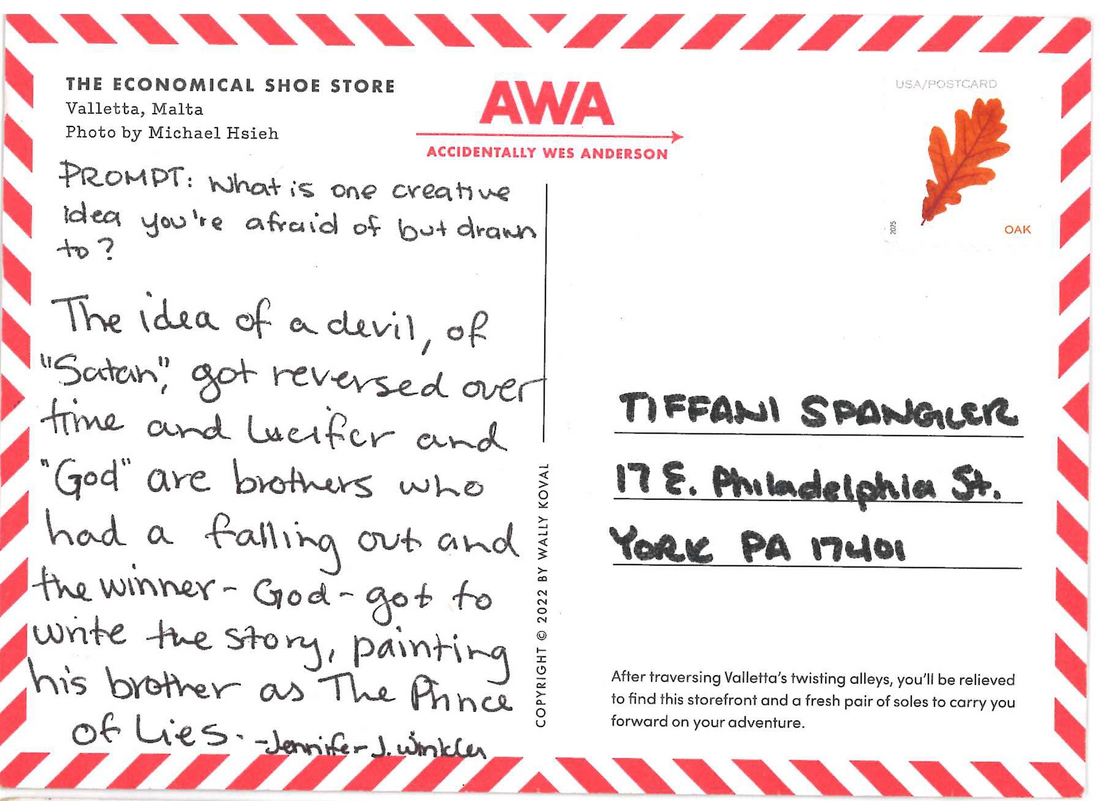 THE ECONOMICAL SHOE STORE
Valletta, Malta
Photo by Michael Hsieh
AWA
ACCIDENTALLY WES ANDERSON
USA/POSTCARD
2025
OAK
PROMPT: What is one creative
idea you're afraid of but drawn
to?
The idea of a devil, of
"Satan", got reversed over
time and Lucifer and
"God" are brothers who
had a falling out and
the winner - God - got to
write the story, painting
his brother as The Prince
of Lies. -Jennifer J. Winkler
COPYRIGHT © 2022 BY WALLY KOVAL
TIFFANI SPANGLER
17 E. Philadelphia St.
YORK PA 17401
After traversing Valletta's twisting alleys, you'll be relieved
to find this storefront and a fresh pair of soles to carry you
forward on your adventure.